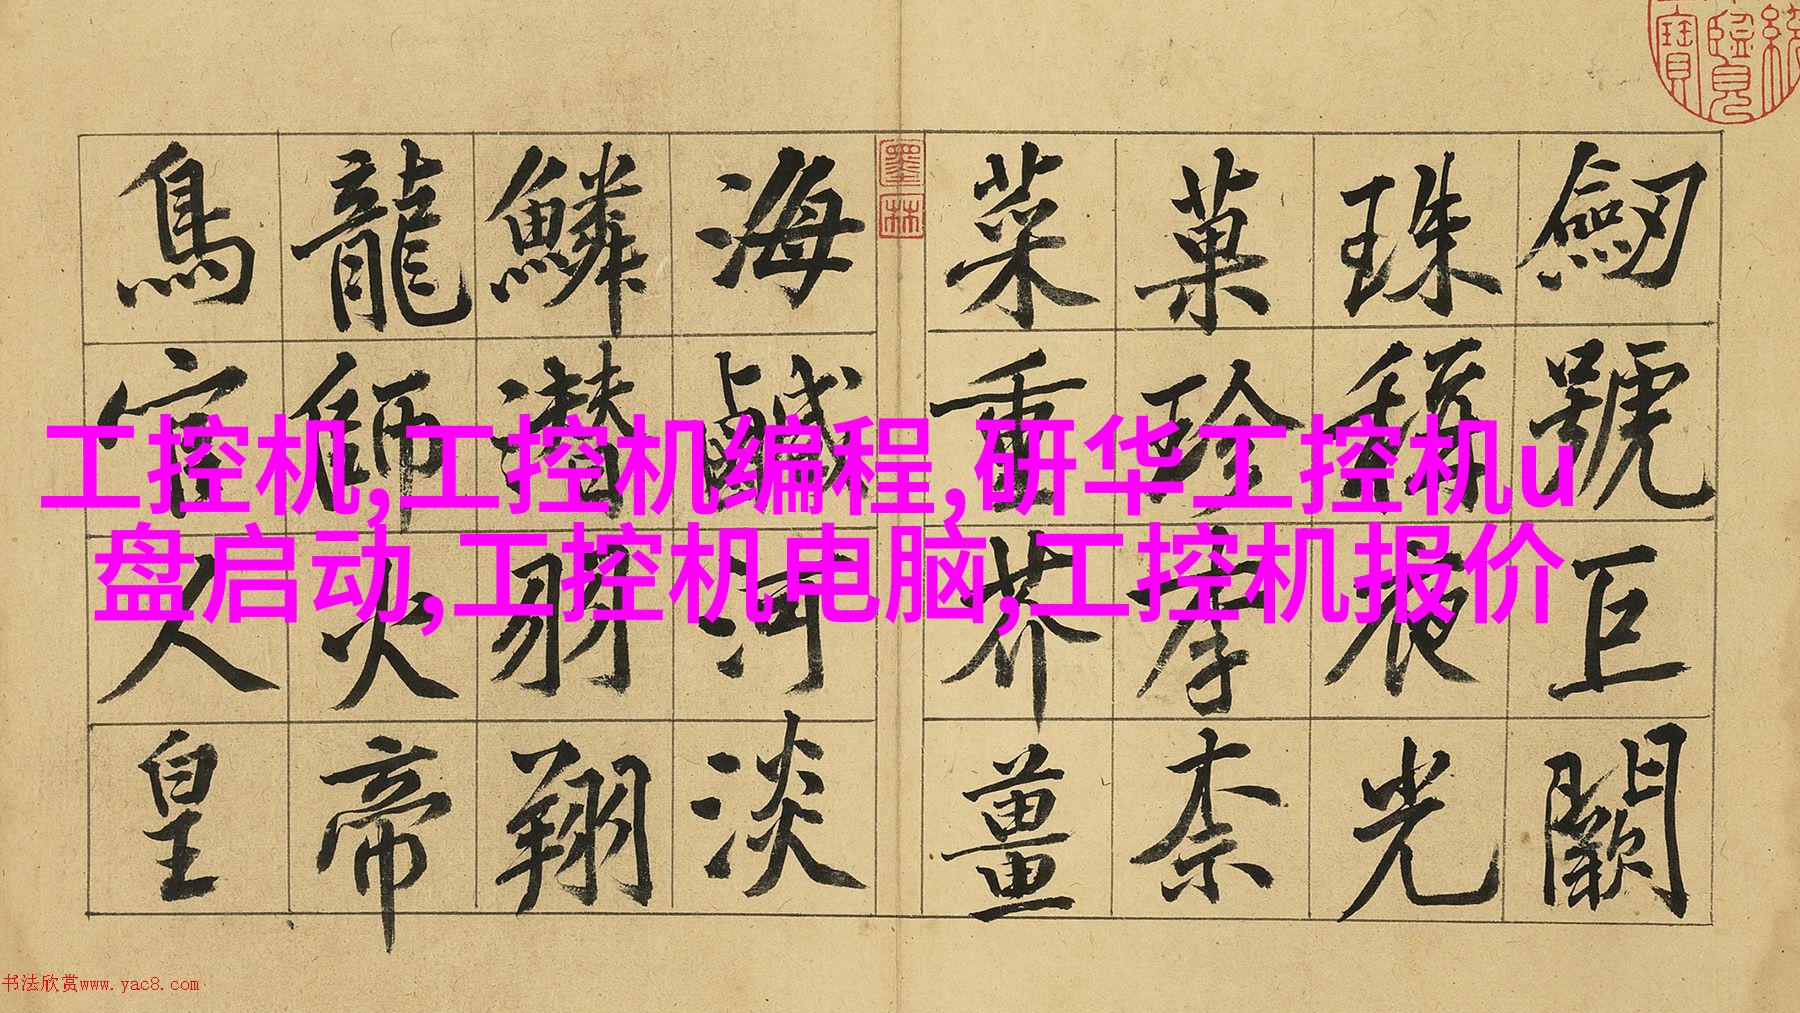 劒號巨闕
珠稱夜光
菓珍李柰
菜重芥薑
海鹹河淡
鱗潛羽翔
龍師火帝
鳥官人皇
墨林
工控机,工控机编程,研华工控机u
盘启动,工控机电脑,工控机报价
书法欣赏www.yac8.com